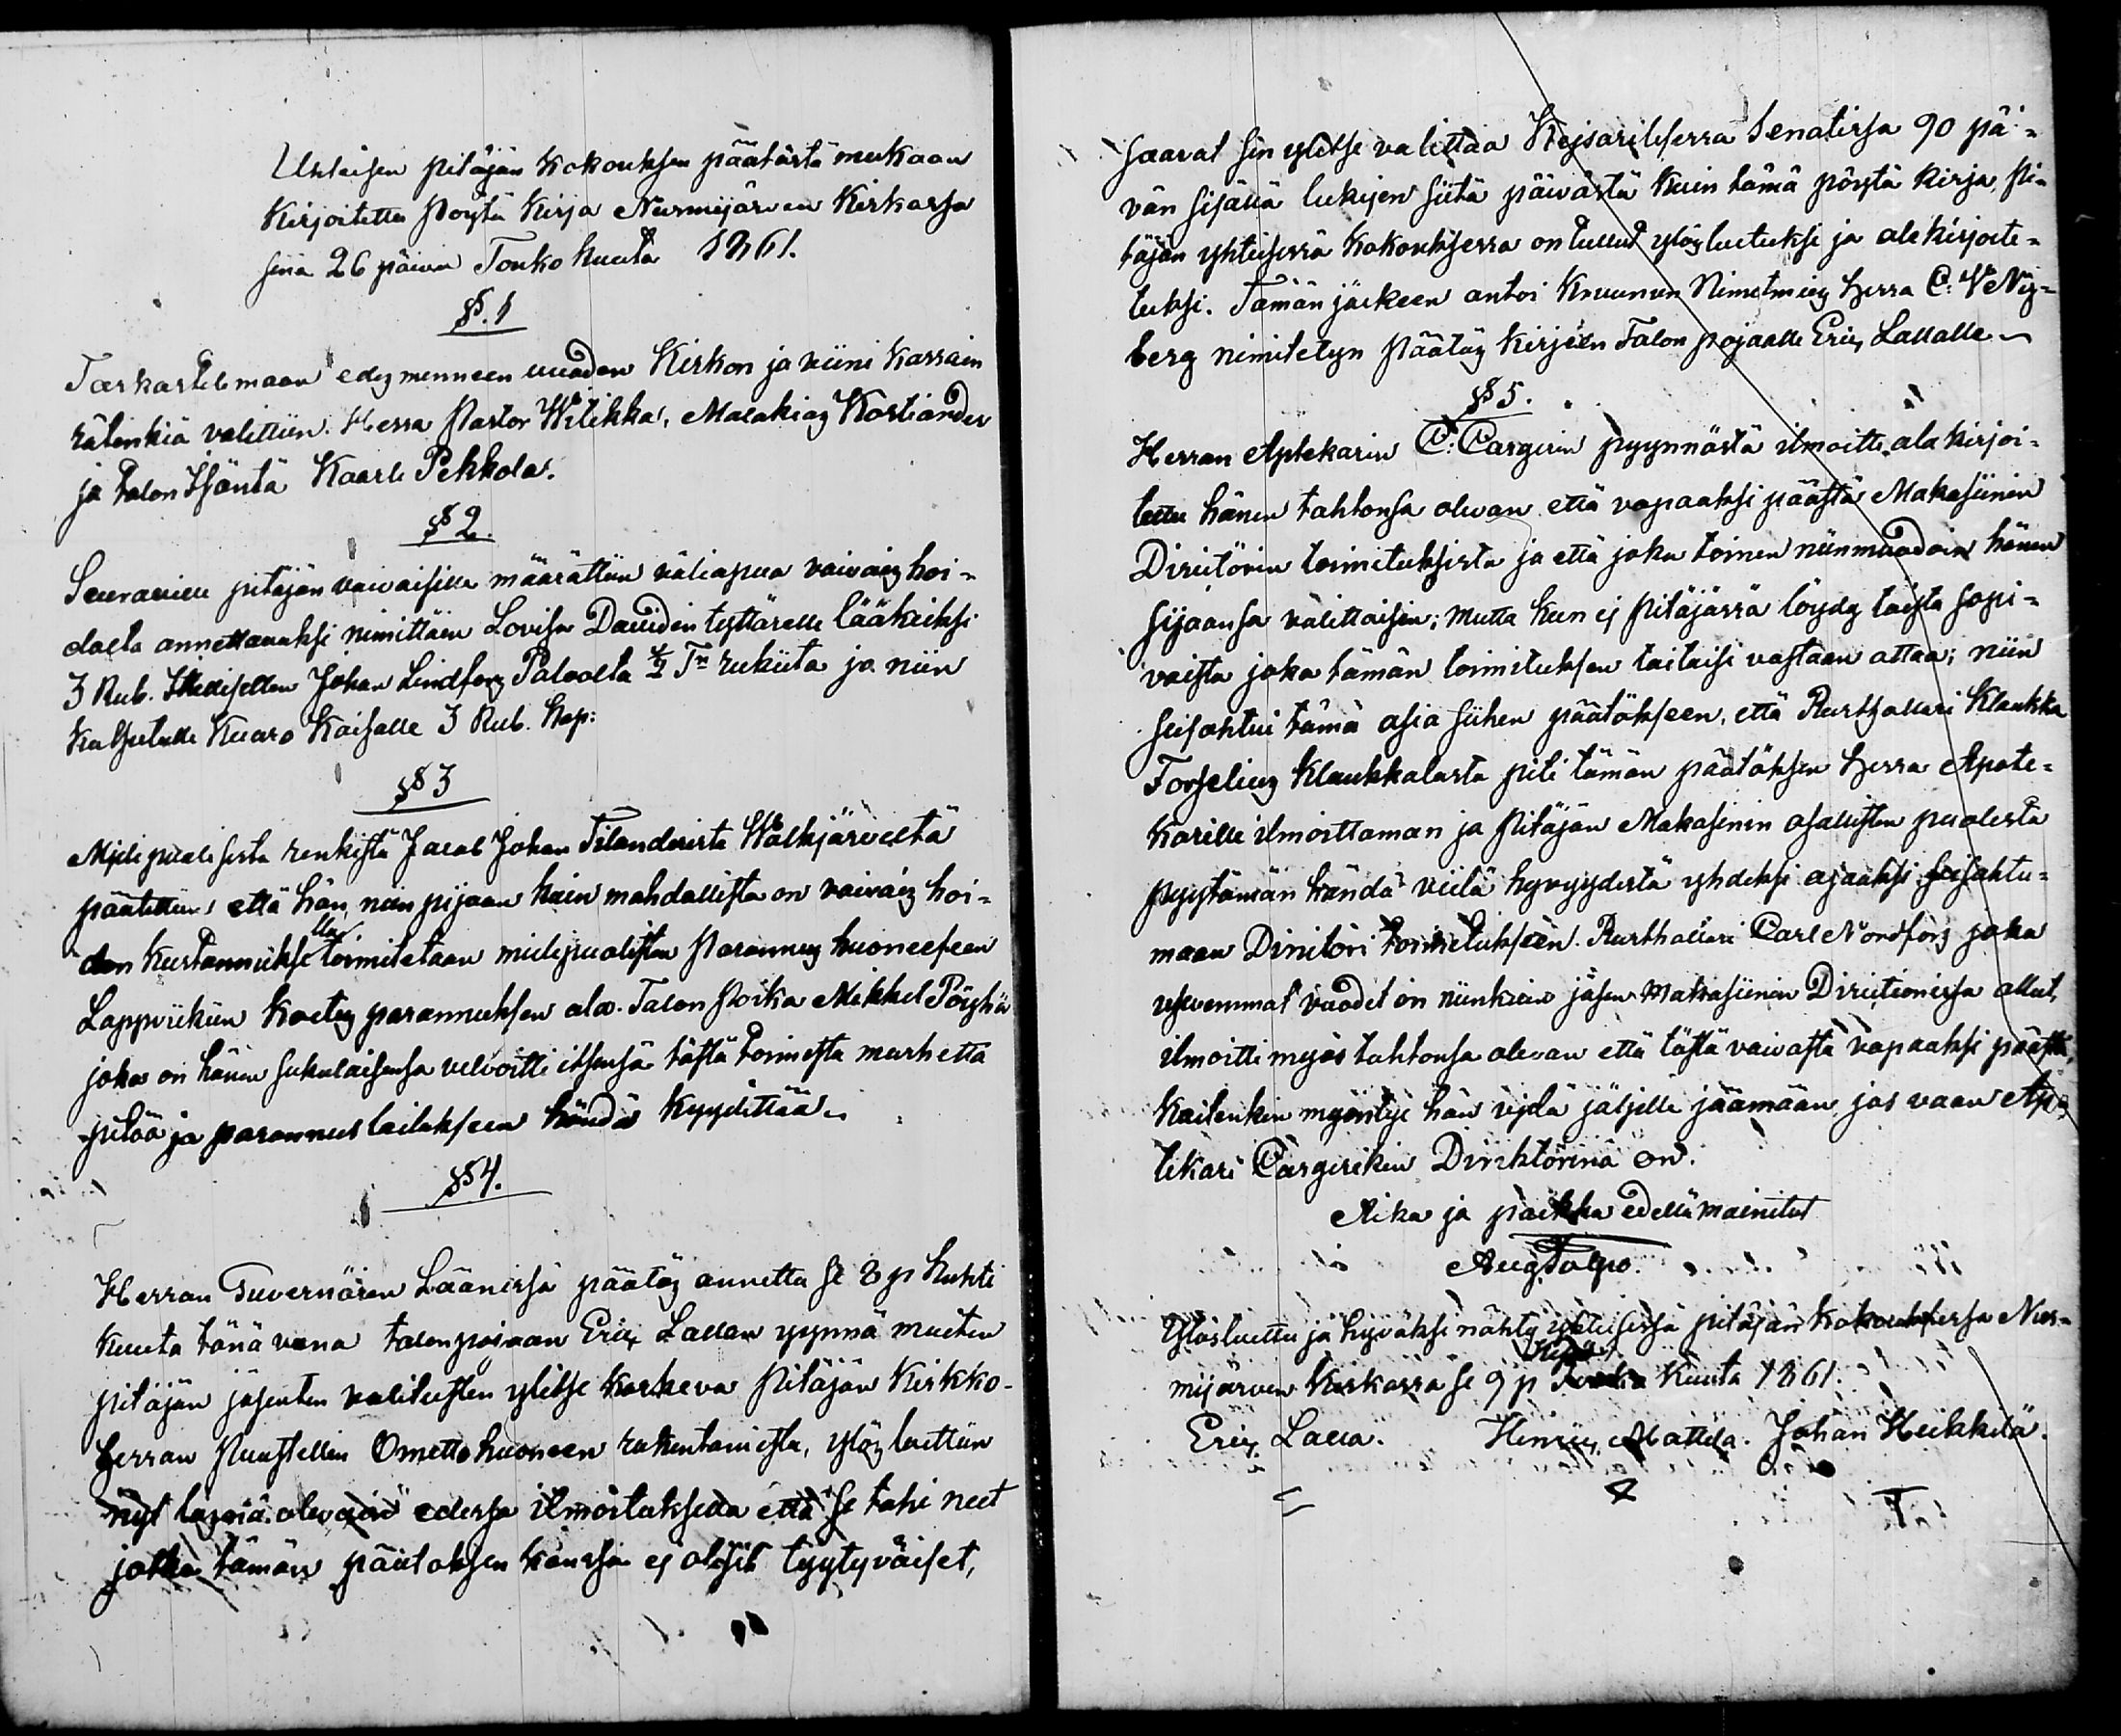 Uhteisen pitäjän kokouksen päätöstä mukaan
Kirjoitettu Poytä Kirja Nurmijärven Kirkossa
sinä 26 päivä Touko kuuta 1861.
§. 1
Tarkastelemaan edesmenneen vuoden Kirkon ja viini kassain
räkinkiä valittiin. Herra Pastor Witikka, Malakias Kostiander
ja talon Isäntä Kaarle Pekkola.
§ 2.
Seuraville pitäjän vaivaisille määrättiin väliapua vaivais hoi-
dolta annettavaksi nimittäin Lovisa Davidin tyttärelle lääkeiksi
3 Rub. Itkellisellen Johan Lindfors Palvolta ½ Tn rukiita ja niin
kutsutulle Kuaro Kaisalle 3 Rub. hop:
§ 3
Mjelipuolisesta renkistä Jacob Johan Tilanderista Walkjärveltä
päätettiin että hän, niin pijaan kuin mahdollista on vaivais hoi-
don kustannuksella toimitetaan mielipuolisten Parannus huoneeseen
Lappviikiin koetus parannuksen ala. Talon Poika Mikkel Pöyhiä
joka on hänen sukulaisensa velvoitti itsensä tästä toimesta murhetta
pitää ja parannuslaitokseen händä kyydittää.
§ 4.
Herran Guvernören Läänissä päätös annettu se 8 p huhti
kuuta tänä vuna talonpoijaan Eric Lallan ynnä muiten
pitäjän jäsenten valitusten ylitse koskeva Pitäjän Kirkko-
herran Puustellin Ometto huoneen rakentamista, ylös luettiin
nyt läsnä olevain edessä ilmoituksella että se tahi neet
jotka tämän päätöksen kanssa ej olisit tyytyväiset,
saavat sen ylitse valittaa Keisarilisessa Senatissa 90 päi-
vän sisällä lukijen siitä päivästä kuin tämä pöytä kirja, Pi-
täjän yhteisessä kokouksessa on tullut ylösluetuksi ja ale kirjoite-
tuksi. Tämän jälkeen antoi Kruunun Nimitmies herra C. W Ny-
berg nimitetyn Päätös kirjeen Talon pojalle Eric Lallalle
§ 5.
Herran Aptekarin C: Cargerin pyynnöstä ilmoitti ala kirjoi-
tettu hänen tahtonsa olevan että vapaaksi päästä Makasiinin
Diriktörin toimituksista ja että joku toinen niinmuodoin hänen
sijaansa valittaisin; mutta kun ej Pitäjässä löydy taista sopi-
vaista joka tämän toimituksen taitaisi vastaan ottaa; niin
seisahtui tämä asia siihen päätökseen, että Rusthollari Klaukka
Forselius Klaukkalasta piti tämän päätöksen herra Apote-
karille ilmoittaman ja Pitäjän Makasinin osallisten puolesta
pyytämän händä vielä hyvyydestä yhdeksi ajaaksi seisahtu-
maan Diriktöri toimitukseen. Rusthollari Carl Nordfors joka
usiammat vuodet on niinkuin jäsen Makasiinin Direktionissa ollut,
ilmoitti myös tahtonsa olevan että tästä vaivasta vapaaksi päästä,
kuitenkin myöntyi hän vielä jäljille jäämään jos vaan Ap-
tekari Cargerikin Diriktörinä on.
Aika ja paikka edellämainitut
Aug. Palpo.
Ylösluettu ja hyväksi nähty yhteisessä pitäjän kokouksessa Nur-
mijärven kirkossa se 9 p kuuta 1861.
Eric Lalla. Hinric Mattila. Johan Heikkilä.